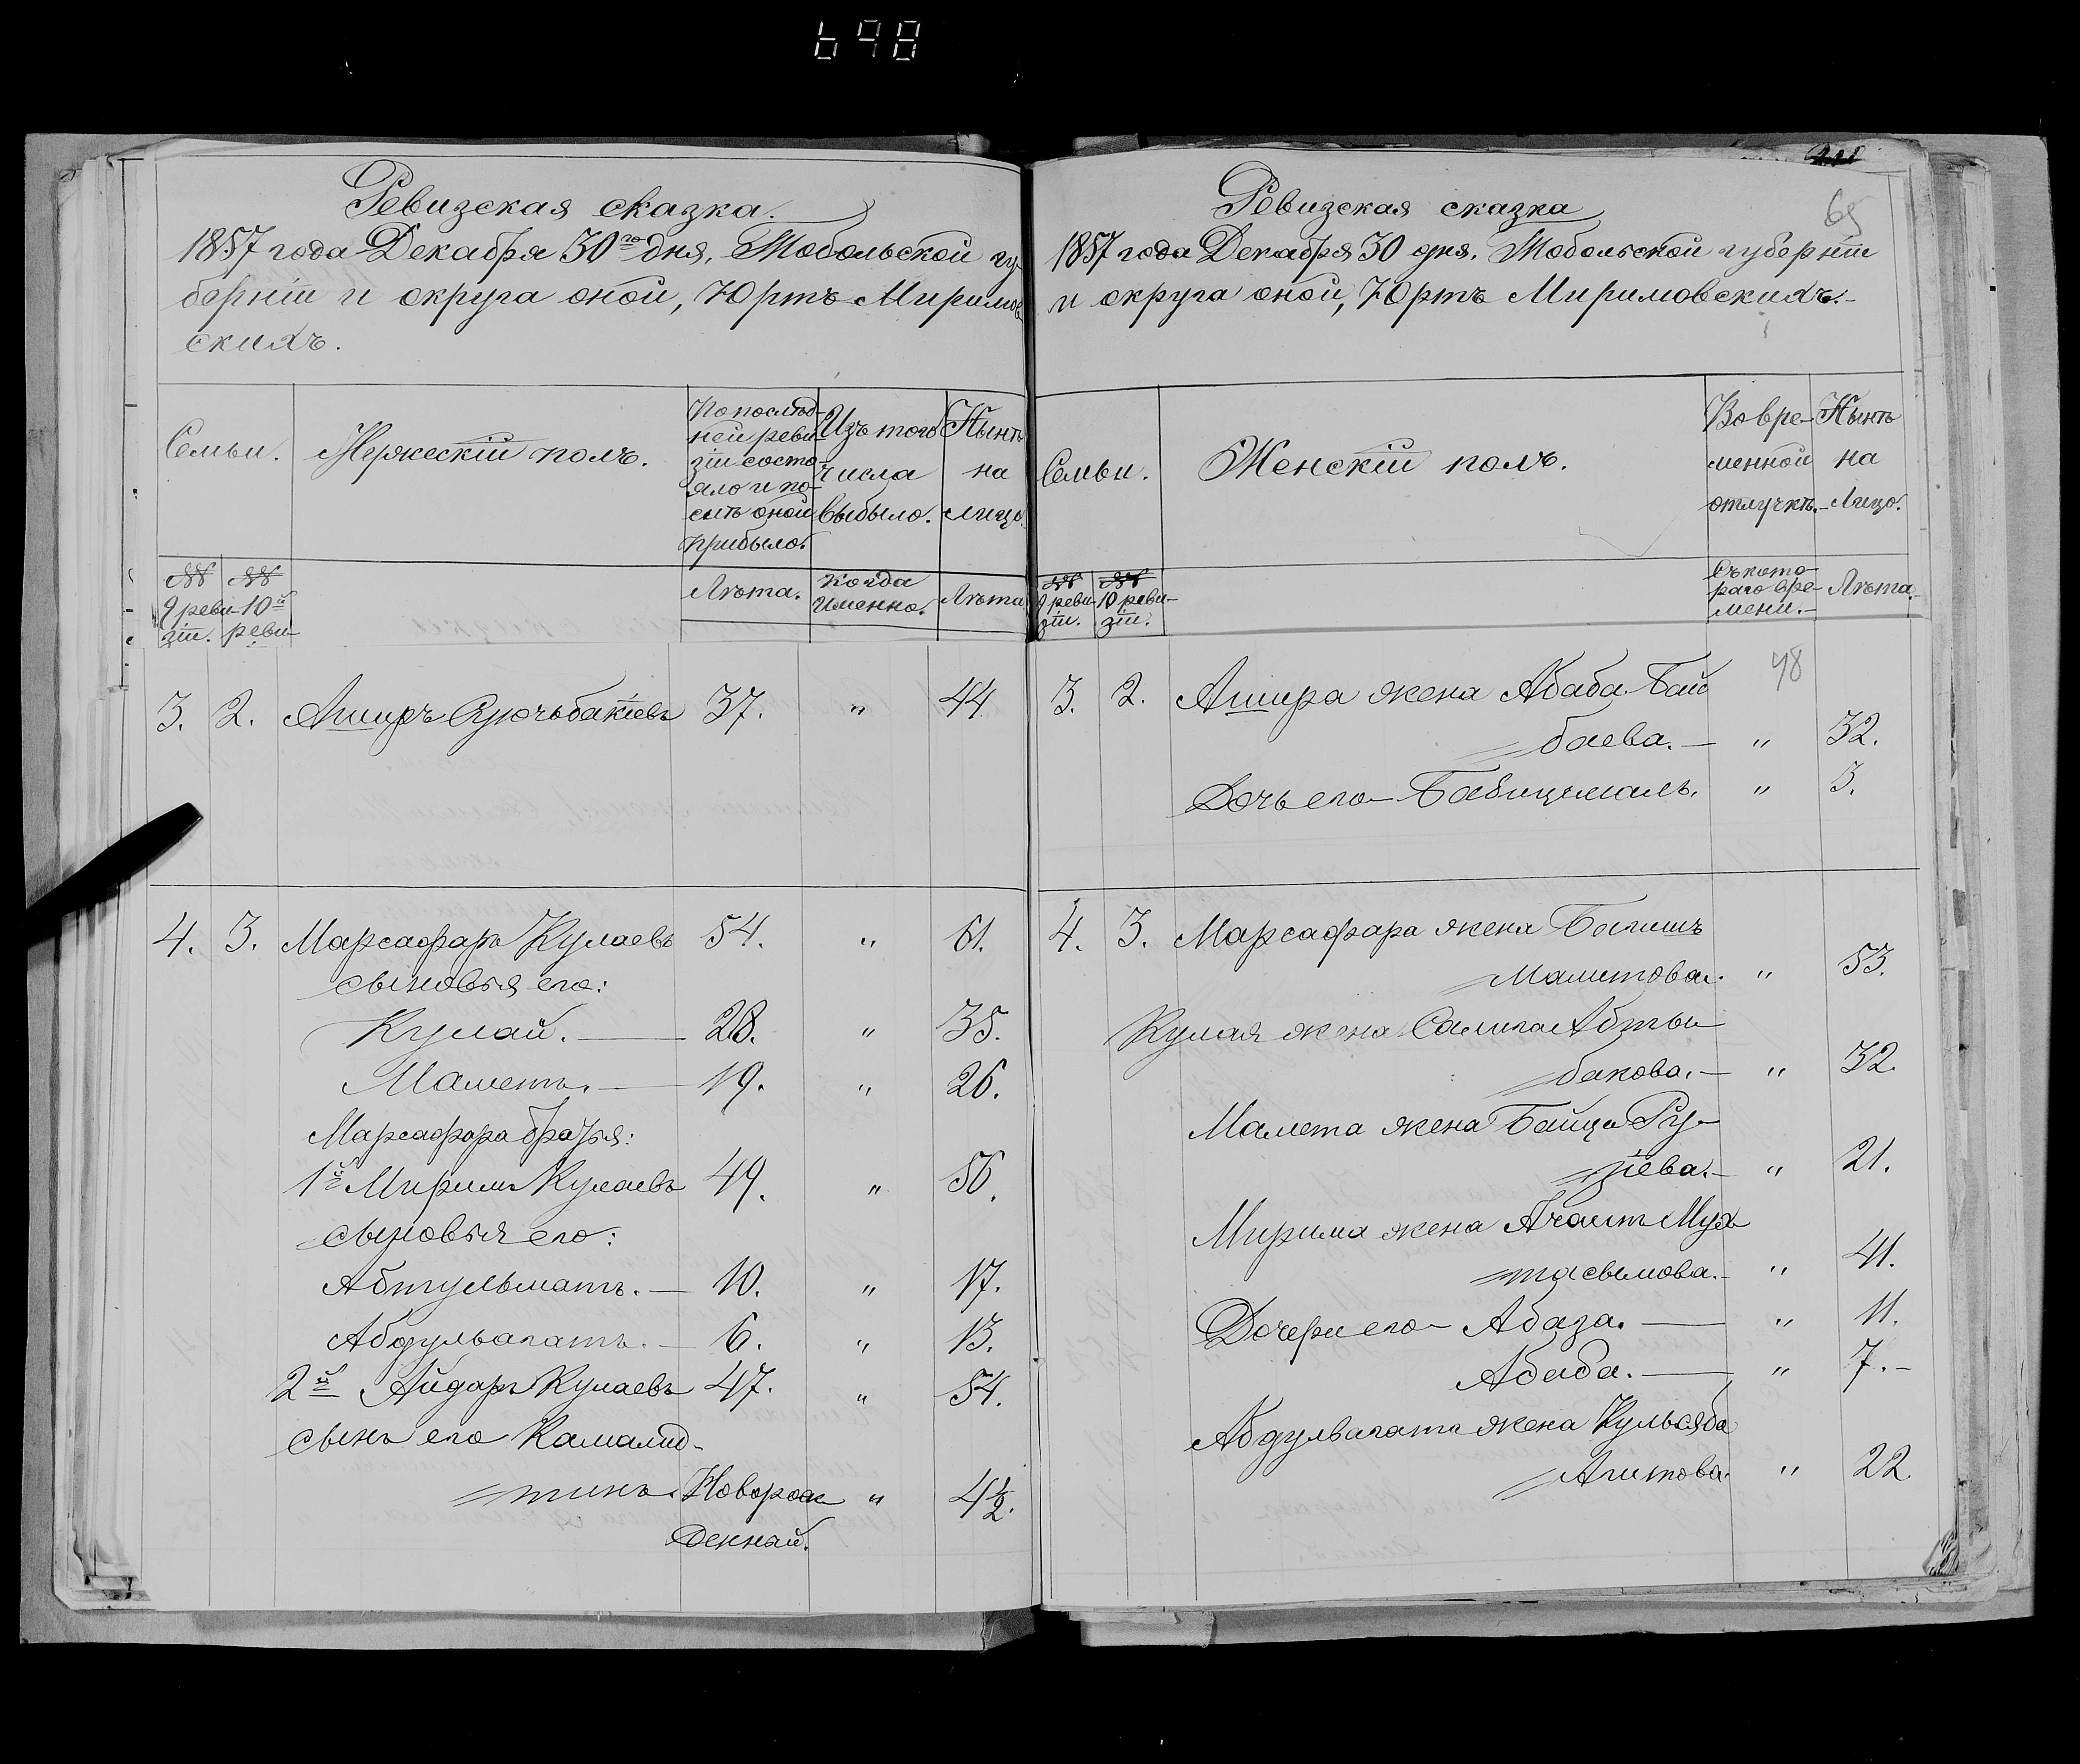 698
Ревизская сказка.
1857 года Декабря 30го дня, Тобольской гу-
берніи и округа оной, Юртъ Миримов
скихъ.
Семьи.
Мужескій полъ.
По послѣд-
ней реви-
зіи состо-
яло и по-
слѣ оной
прибыло.
Изъ того
числа
выбыло.
Нынѣ
на
лицо.
№№
9 реви-
зіи.
№№
10й
реви-
Лѣта.
Когда
именно.
Лѣта
3. 2. Аширъ 37. " 44
4. 3. Марсафаръ Кулаевъ 54. " 61.
сыновья его:
Кулай. 28. " 35.
Маметъ. 19. " 26.
Марсафара братья:
1й Миримъ Кулаевъ 49. " 56.
сыновья его:
Абтульматъ. 10. " 17.
Абдулвагатъ. 6. " 13.
2й Айдаръ Кулаевъ 47. " 54.
сынъ его Камалит-
тинъ. Новорож " 4½.
денный.
Ревизская сказка
65
1857 года Декабря 30 дня, Тобольской губерніи
и округа оной, Юртъ Миримовскихъ.
Семьи.
Женскій полъ.
Во вре-
менной
отлучкѣ.
Нынѣ
на
Лицо.
№№
9 реви-
зіи.
№№
10 реви-
зіи.
Съ кото-
раго вре-
мени.
Лѣта.
48
3. 2. Ашира жена Абаба Бай
баева. " 32.
Дочь его Бабицямаль. " 3.
4. 3. Марсафара жена Багишъ
Мамитова. " 53.
Кулая жена Салига Абты
бакова. " 32.
Мамета жена Байца Ру-
" 21.
Мирима жена Мух
тасымова. " 41.
Дочери его Абаза. " 11.
Абаба. " 7.
Абдулвагата жена
Агитова. " 22.